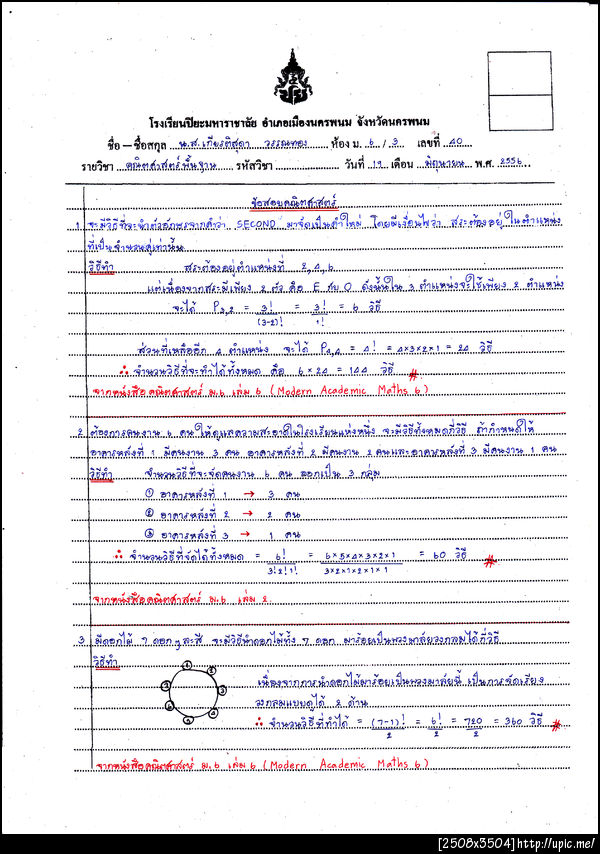 โรงเรียนปิยะมหาราชาลัย อำเภอเมืองนครพนม จังหวัดนครพนม
ชื่อ – ชื่อสกุล น.ส.เกียรติสุดา วรรณทอง ห้อง ม. 6 / 3 เลขที่ 40
รายวิชา คณิตศาสตร์พื้นฐาน รหัสวิชา วันที่ 19 เดือน มิถุนายน พ.ศ. 2556
ข้อสอบคณิตศาสตร์
1. จะมีวิธีที่จะนำตัวอักษรจากคำว่า SECOND มาจัดเป็นคำใหม่ โดยมีเงื่อนไขว่า สระต้องอยู่ในตำแหน่ง
ที่เป็นจำนวนคู่เท่านั้น
วิธีทำ สระต้องอยู่ตำแหน่งที่ 2, 4, 6
แต่เนื่องจากสระมีเพียง 2 ตัว คือ E กับ O ดังนั้นใน 3 ตำแหน่งจะใช้เพียง 2 ตำแหน่ง
จะได้ P3,2 = 3!/(3-2)! = 3!/1! = 6 วิธี
ส่วนที่เหลืออีก 4 ตำแหน่ง จะได้ P4,4 = 4! = 4×3×2×1 = 24 วิธี
∴ จำนวนวิธีที่จะทำได้ทั้งหมด คือ 6 × 24 = 144 วิธี #
จากหนังสือคณิตศาสตร์ ม.6 เล่ม 6 (Modern Academic Maths 6)
2. ต้องการคนงาน 6 คน ให้ดูแลความสะอาดในโรงเรียนแห่งหนึ่ง จะมีวิธีทั้งหมดกี่วิธี ถ้ากำหนดให้
อาคารหลังที่ 1 มีคนงาน 3 คน อาคารหลังที่ 2 มีคนงาน 2 คนและอาคารหลังที่ 3 มีคนงาน 1 คน
วิธีทำ จำนวนวิธีที่จะจัดคนงาน 6 คน ออกเป็น 3 กลุ่ม
① อาคารหลังที่ 1 → 3 คน
② อาคารหลังที่ 2 → 2 คน
③ อาคารหลังที่ 3 → 1 คน
∴ จำนวนวิธีที่จัดได้ทั้งหมด = 6!/3!2!1! = 6×5×4×3×2×1/3×2×1×2×1×1 = 60 วิธี #
จากหนังสือคณิตศาสตร์ ม.6 เล่ม 2
3. มีดอกไม้ 7 ดอก ๆ ละสี จะมีวิธีนำดอกไม้ทั้ง 7 ดอก มาร้อยเป็นพวงมาลัยวงกลมได้กี่วิธี
วิธีทำ
เนื่องจากการนำดอกไม้มาร้อยเป็นพวงมาลัยนี้ เป็นการจัดเรียง
วงกลมแบบดูได้ 2 ด้าน
∴ จำนวนวิธีที่ทำได้ = (7-1)!/2 = 6!/2 = 720/2 = 360 วิธี #
จากหนังสือคณิตศาสตร์ ม.6 เล่ม 6 (Modern Academic Maths 6)
[2508x3504]http://upic.me/